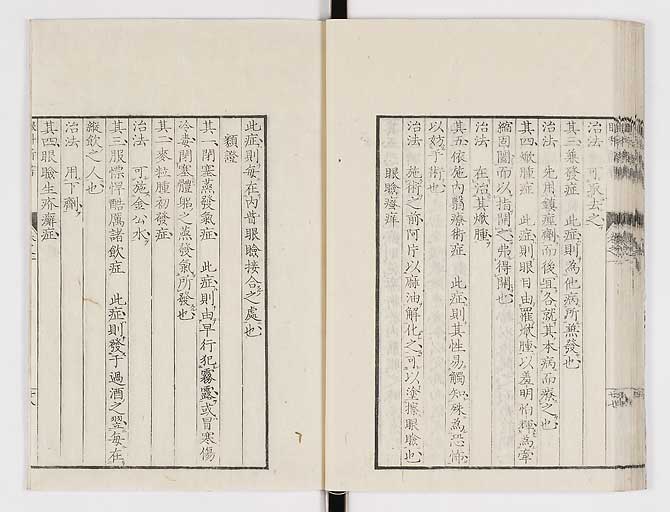 治法　可取去之
其三兼發症　此症則為他病所無發也
治法　先用鎮痙劑而後宜各就其本病而療之也
其四焮腫症　此症則眼目由罹焮腫以羞明怕輝為牽
縮固闔而以指開之弗得開也
治法　在治其焮腫
其五依施内翳療術症　此症則其性易觸知殊為恐怖
以妨乎術也
治法　施術之前阿片以麻油解化之可以塗擦眼瞼也
眼瞼痒痒
此症則每在内眥眼瞼接合之處也
類證
其一閉塞蒸發氣症　此症則由早行犯霧露或冒寒傷
冷妻閉塞體軀之蒸發氣所發也
其二麥粒腫初發症
治法　可施金公水
其三服慓悍酷厲諸飲症　此症則發于過酒之翌每在
縱飲之人也
治法　用下劑
其四眼瞼生疥癬症